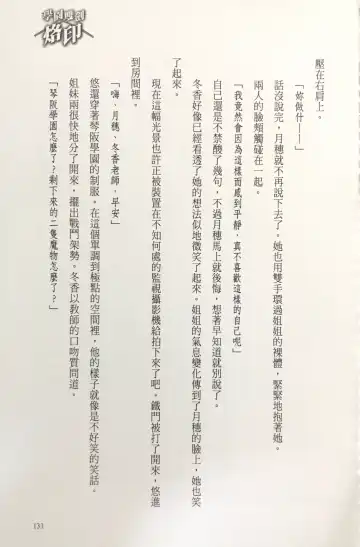 學園魔剣
烙印
壓在右肩上。
「妳做什——」
話沒說完，月穗就不再說下去了。她也用雙手環過姐姐的裸體，緊緊地抱著她。
兩人的臉頰觸碰在一起。
「我竟然會因為這樣而感到平靜，真不喜歡這樣的自己呢」
自己還是不禁酸了幾句，不過月穗馬上就後悔，想著早知道就別說了。
冬香好像已經看透了她的想法似地微笑了起來。姐姐的氣息變化傳到了月穗的臉上，她也笑
了起來。
現在這幅光景也許正被裝置在不知何處的監視攝影機給拍下來了吧。鐵門被打了開來，悠進
到房間裡。
「嗨，月穗、冬香老師，早安」
悠還穿著琴阪學園的制服。在這個單調到極點的空間裡，他的樣子就像是不好笑的笑話。
姐妹兩很快地分了開來，擺出戰鬥架勢。冬香以教師的口吻質問道。
「琴阪學園怎麼了？剩下來的二隻魔物怎麼了？」
133